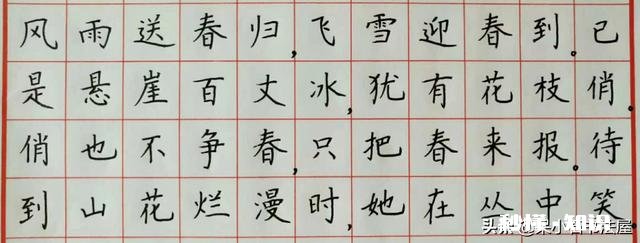 风雨送春归,飞雪迎春到。已
是悬崖百丈冰,犹有花枝俏。
俏也不争春,只把春来报。待
到山花烂漫时,她在丛中笑
秒懂·知识